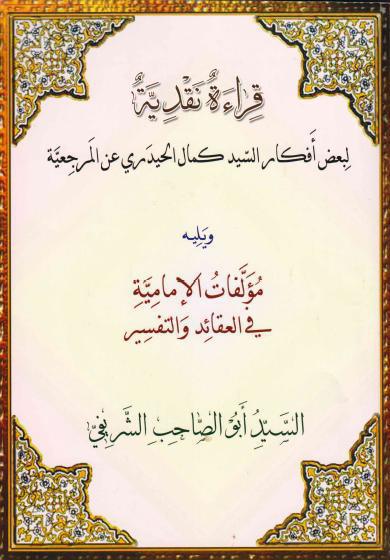 قِرَاءَةٌ نَقْدِيَّةٌ
لبعض أَفكار السّيد كمال الحيدَري عن المَرجعيَّة
ويَليه
مُؤَلَّفَاتُ الإِمَامِيَّةِ
في العقَائِدِ وَالتَّفسِير
السَّيِّدُ أَبُو الصَّاحِبِ الشَّرِيفِيّ